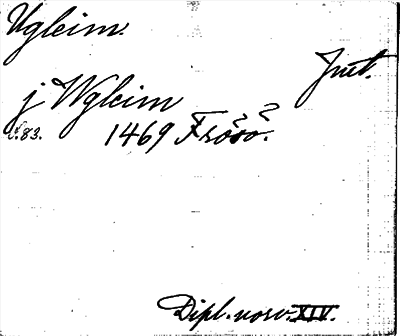 Ugleim.
Jmt.
j Wgleim
S. 83. 1469 Frösö.
Dipl. norv. XIV.